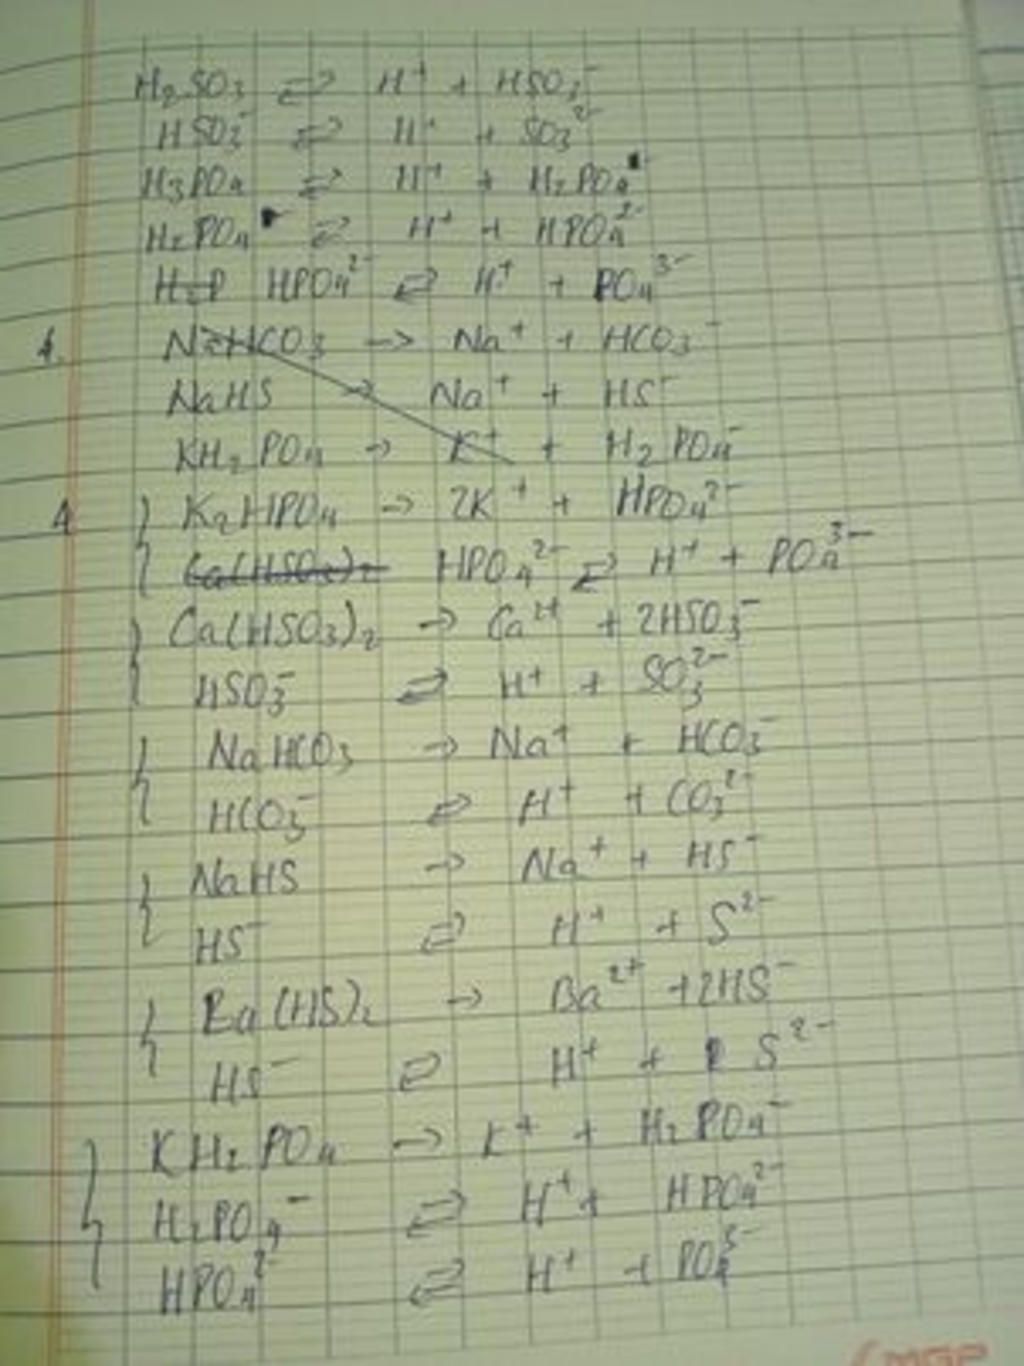 H₂SO₃ ⇄ H⁺ + HSO₃⁻
HSO₃⁻ ⇄ H⁺ + SO₃²⁻
H₃PO₄ ⇄ H⁺ + H₂PO₄⁻
H₂PO₄⁻ ⇄ H⁺ + HPO₄²⁻
H₂P HPO₄²⁻ ⇄ H⁺ + PO₄³⁻
NaHCO₃ → Na⁺ + HCO₃⁻
NaHS → Na⁺ + HS⁻
KH₂PO₄ → K⁺ + H₂PO₄⁻
K₂HPO₄ → 2K⁺ + HPO₄²⁻
HPO₄²⁻ ⇄ H⁺ + PO₄³⁻
Ca(HSO₃)₂ → Ca²⁺ + 2HSO₃⁻
HSO₃⁻ ⇄ H⁺ + SO₃²⁻
NaHCO₃ → Na⁺ + HCO₃⁻
HCO₃⁻ ⇄ H⁺ + CO₃²⁻
NaHS → Na⁺ + HS⁻
HS⁻ ⇄ H⁺ + S²⁻
Ba(HS)₂ → Ba²⁺ + 2HS⁻
HS⁻ ⇄ H⁺ + S²⁻
KH₂PO₄ → K⁺ + H₂PO₄⁻
H₂PO₄⁻ ⇄ H⁺ + HPO₄²⁻
HPO₄²⁻ ⇄ H⁺ + PO₄³⁻